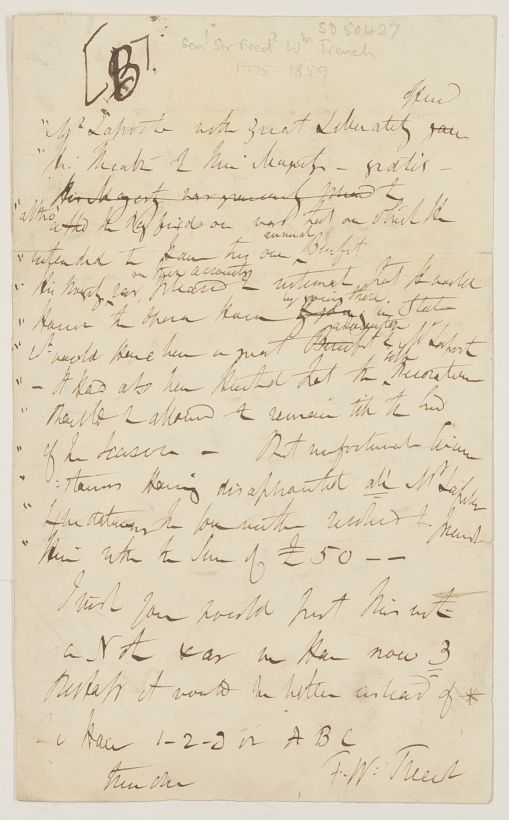 [B]
SD 50427
Genl Sir Fredk Wm Trench
1775-1859
offered
"Mr Laporte with great Liberality gave
"the Theatre of His Majesty - gratis -
His Majesty was graciously pleased to
"altho' the day fixed on was that on which he
"intended to have his own annual Benefit
"His Majesty was on this account pleased to intimate that he would
"Honor the Opera House by going there in State
"It would have been a great advantage to Mr Laporte
"- It had also been that the Decorations
should be allowed to remain till the End
of the Season - But unfortunate Circum
"stances Having disappointed all Mr Laportes
"Expectations the resolved to present
"Him with the Sum of £50 --
I wish you would put this into
a Note & as we Have now 3
Perhaps it would be better instead of *
to Have 1-2-3 or A B C
F. W. Trench